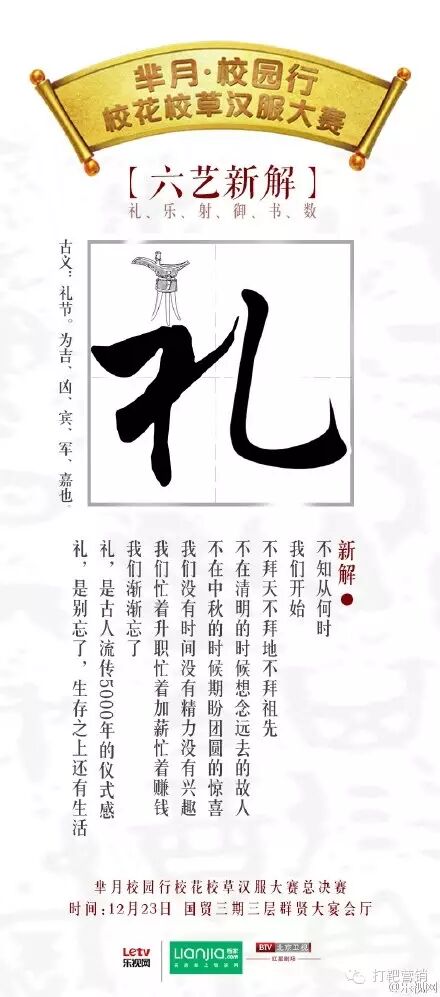 芈月·校园行
校花校草汉服大赛
【六艺新解】
礼、乐、射、御、书、数
古义：礼节。为吉、凶、宾、军、嘉也。
礼
新解
不知从何时
我们开始
不拜天不拜地不拜祖先
不在清明的时候想念远去的故人
不在中秋的时候期盼团圆的惊喜
我们没有时间没有精力没有兴趣
我们忙着升职忙着加薪忙着赚钱
我们渐渐忘了
礼，是古人流传5000年的仪式感
礼，是别忘了，生存之上还有生活
芈月校园行校花校草汉服大赛总决赛
时间:12月23日 国贸三期三层群贤大宴会厅
Letv
乐视网
Lianjia.链家
BTV 北京卫视
红星剧场
打靶营销
@乐视网